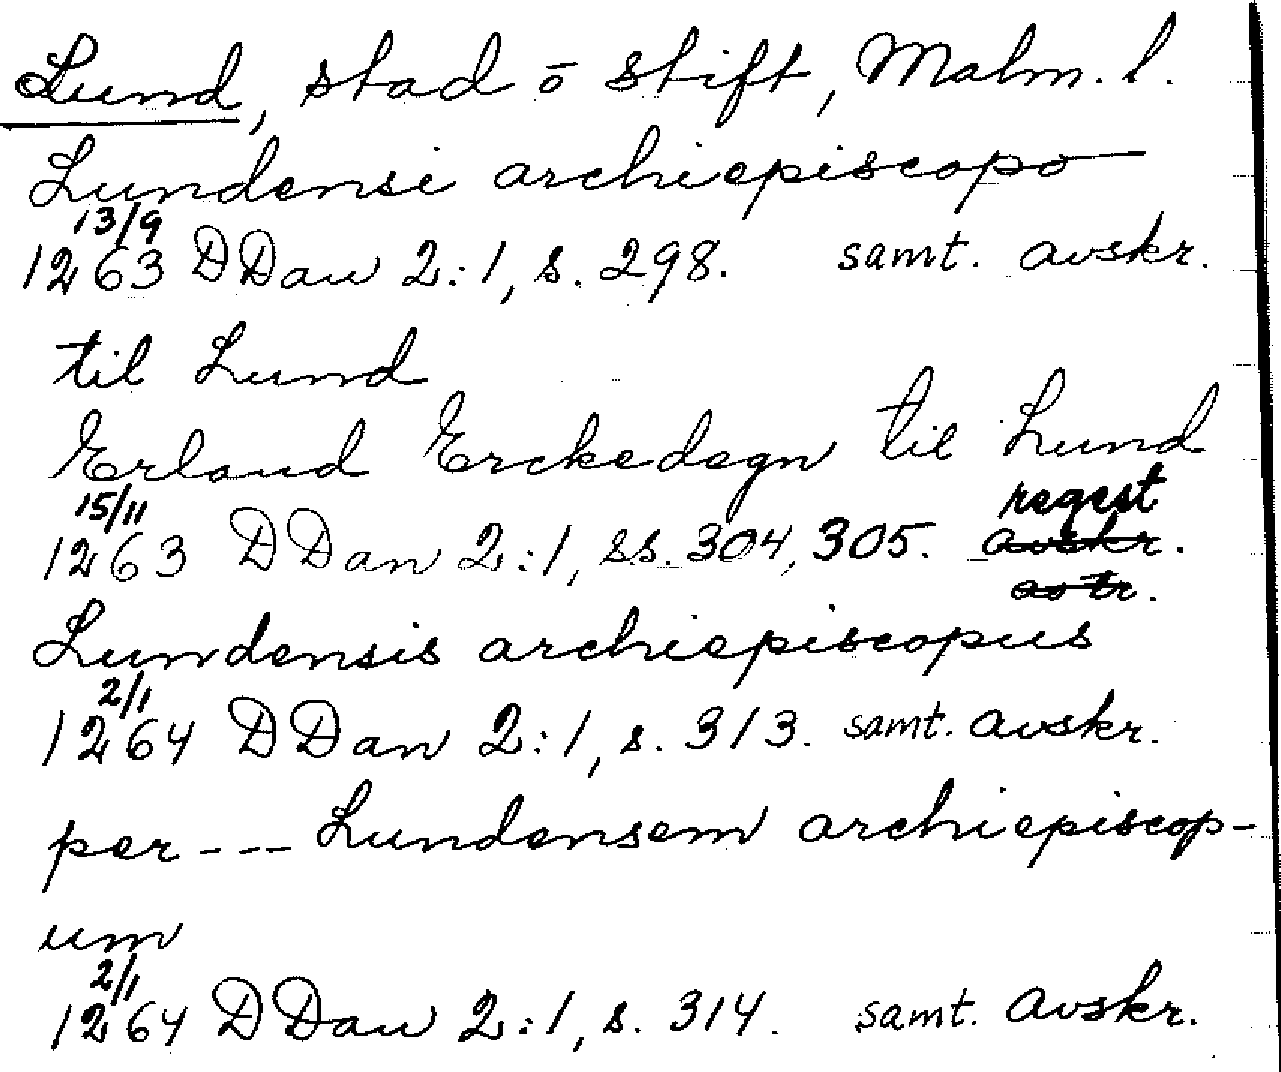 Lund, stad o stift, Malm. l.
Lundensi archiepiscopo
13/9
1263 DDan 2:1, s. 298. samt. avskr.
til Lund
Erland Erckedegn til Lund
15/11 regest
1263 DDan 2:1, ss. 304, 305. avskr.
Lundensis archiepiscopus
2/1
1264 DDan 2:1, s. 313. samt. avskr.
per --- Lundensem archiepiscop-
um
2/1
1264 DDan 2:1, s. 314. samt. avskr.